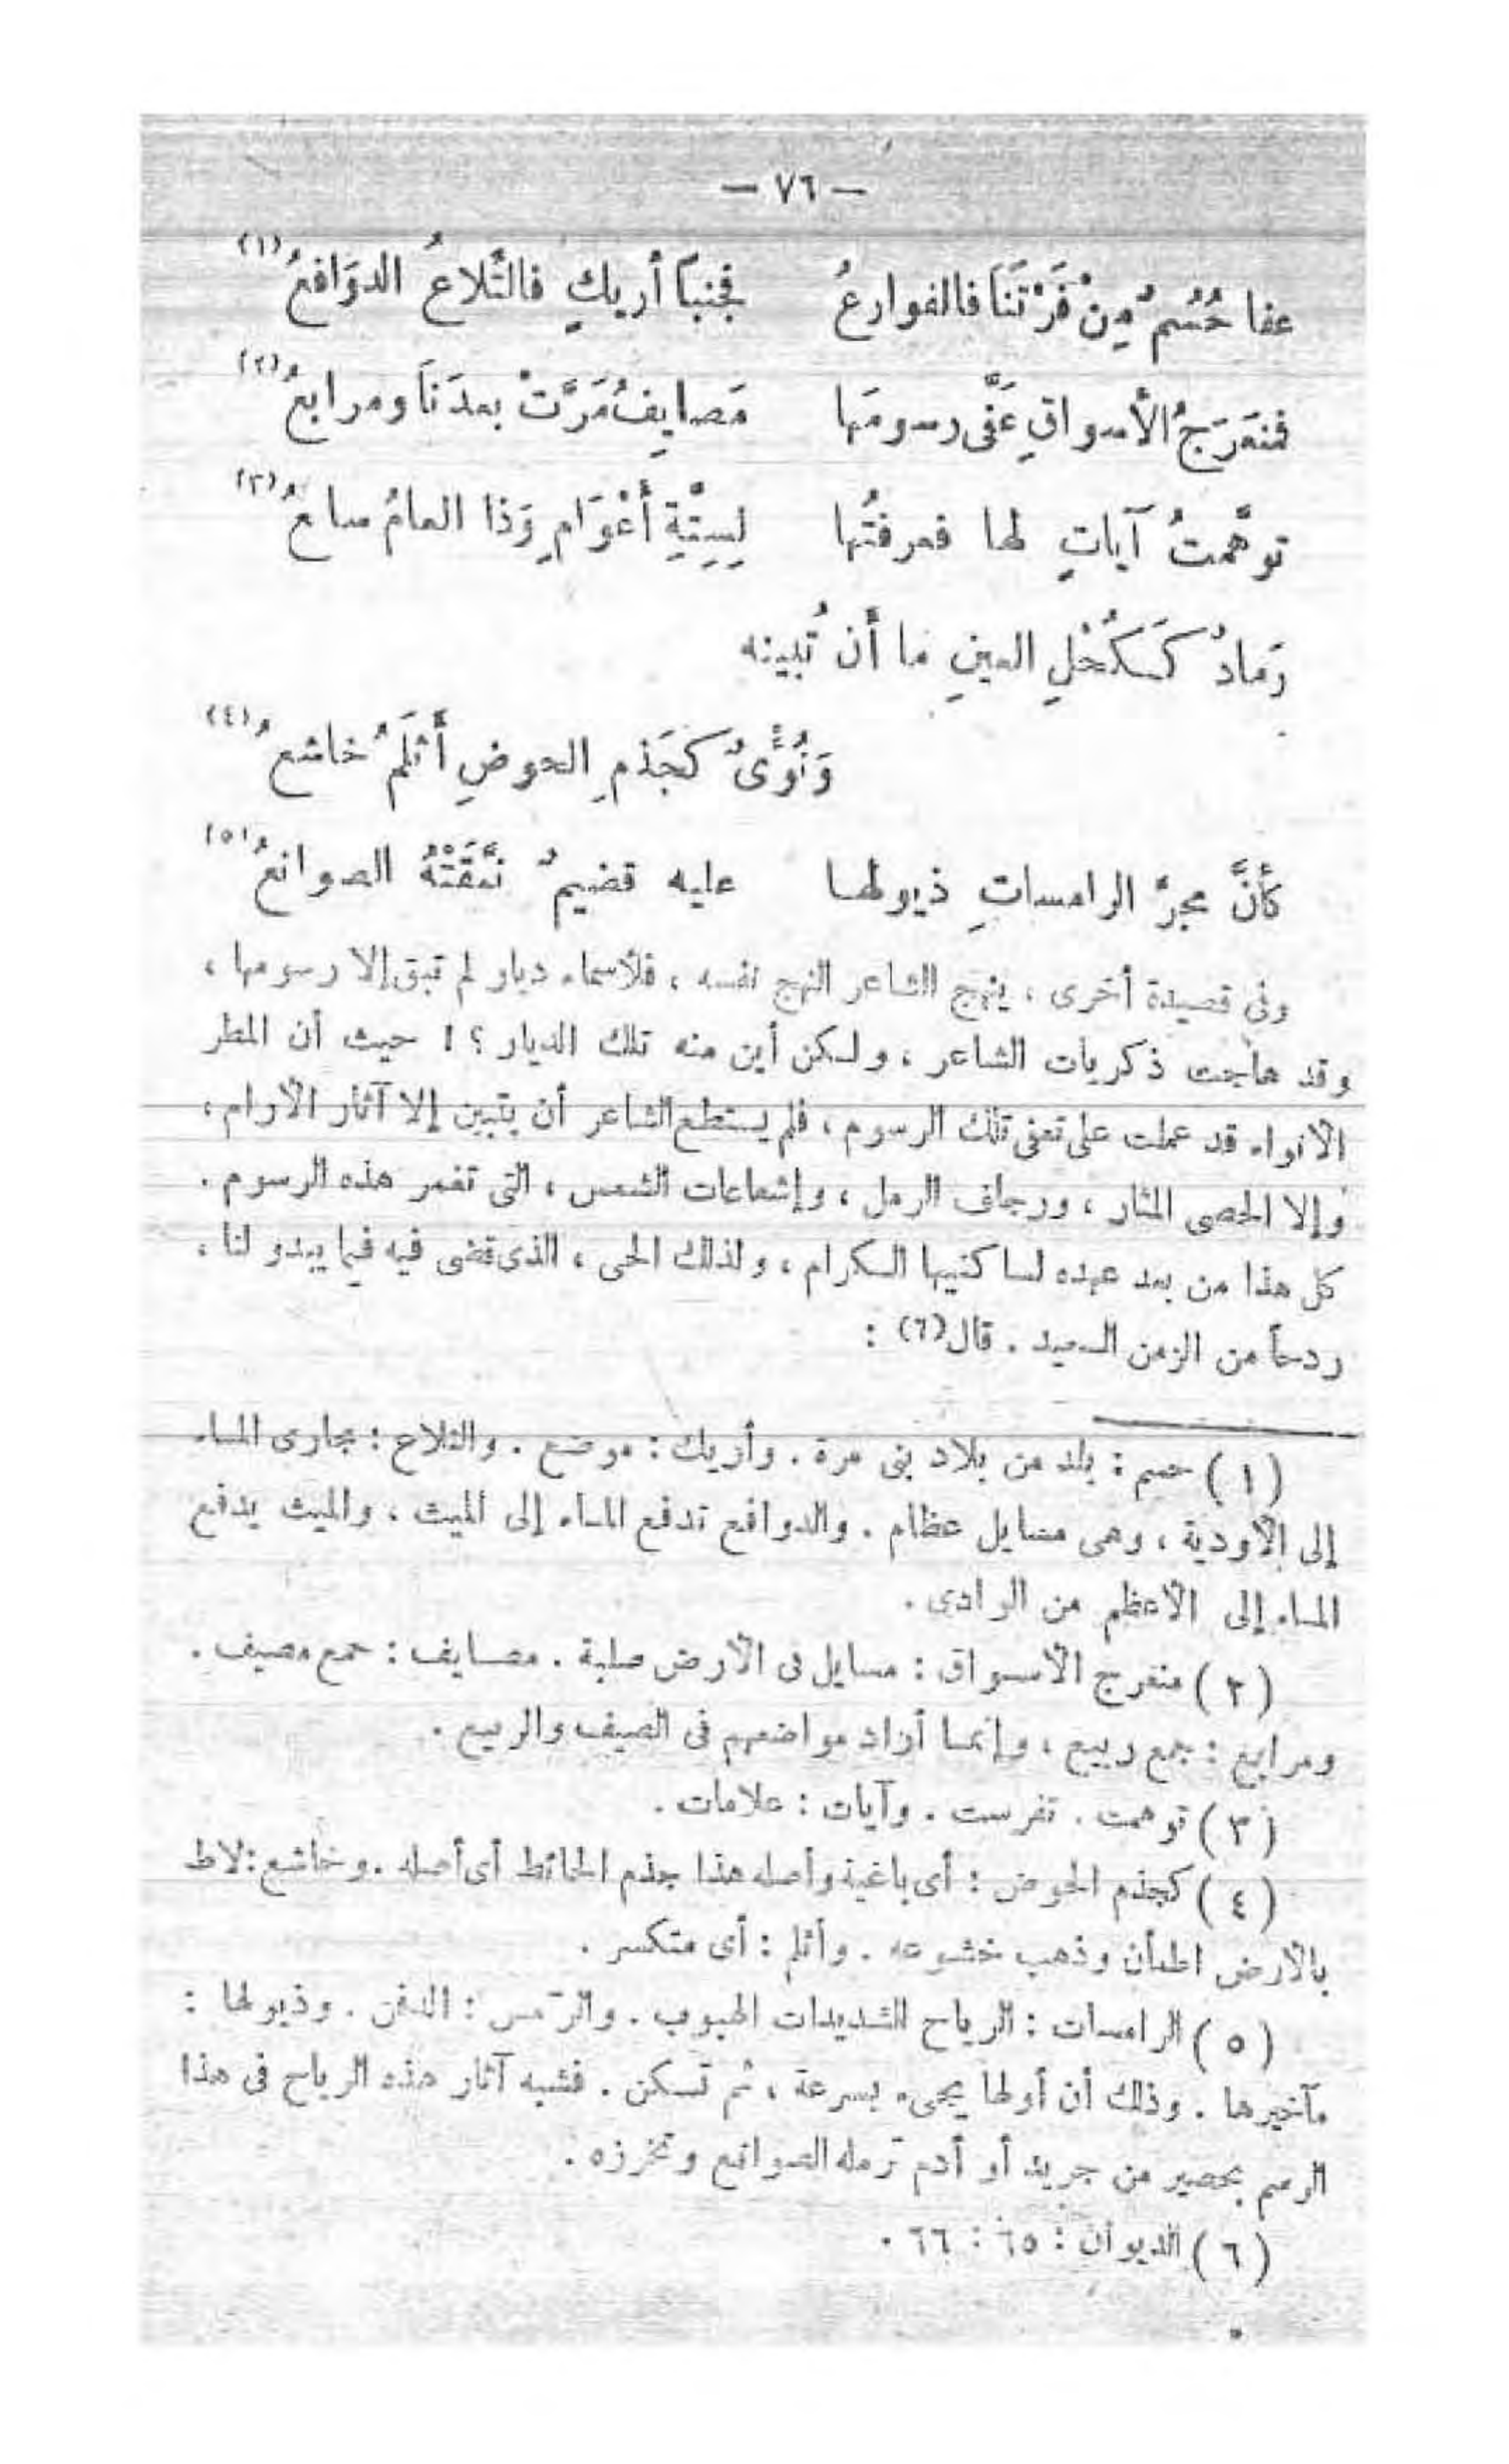 — ٧٦ —
عفا حُسُمٌ مِنْ فَرْتَنَا فالفوارعُ فجنبَا أريكٍ فالتَّلاعُ الدوَافعُ (١)
فمنعَرَجُ الأسواقِ عَفَّى رسومَها مَصايِفُ مَرَّتْ بعدَنَا ومرابعُ (٢)
توهَّمتُ آياتٍ لها فعرفتُها لِسِتَّةِ أعْوَامٍ وَذا العامُ سابعُ (٣)
رَمادٌ كَكُحْلِ العينِ ما أن تُبينه
وَنُؤْىٌ كَجَذمِ الحوضِ أَثلَمُ خاشعُ (٤)
كأنَّ مجرَّ الرامساتِ ذيولها عليه قضيمٌ نمَّقَتْهُ الصوانعُ (٥)
وفى قصيدة أخرى ، ينهج الشاعر النهج نفسه ، فلأسماء ديار لم تبق إلا رسومها ،
وقد هاجت ذكريات الشاعر ، ولكن أين منه تلك الديار ؟ ! حيث أن المطر
الانواء قد عملت على تعفى تلك الرسوم ، فلم يستطع الشاعر أن يتبين إلا آثار الأرام ،
وإلا الحصى المثار ، ورجاف الرمل ، وإشعاعات الشمس ، التى تغمر هذه الرسوم .
كل هذا من بعد عهده لساكنيها الكرام ، ولذلك الحى ، الذى قضى فيه فيما يبدو لنا ،
ردحاً من الزمن السعيد . قال (٦) :
( ١ ) حسم : بلد من بلاد بنى مرة . وأريك : موضع . والتلاع : مجارى الماء
إلى الأودية ، وهى مسايل عظام . والدوافع تدفع الماء إلى الميث ، والميث يدفع
الماء إلى الأعظم من الوادى .
( ٢ ) منعرج الأسواق : مسايل فى الأرض صلبة . مصايف : جمع مصيف .
ومرابع : جمع ربيع ، وإنما أراد مواضعهم فى الصيف والربيع .
( ٣ ) توهمت . تفرست . وآيات : علامات .
( ٤ ) كجذم الحوض : أى باغية وأصله هذا جذم الحائط أى أصله . وخاشع : لاط
بالأرض اطمأن وذهب خشوعه . وأثلم : أى متكسر .
( ٥ ) الرامسات : الرياح الشديدات الهبوب . والرّمس : الدفن . وذيولها :
مآخيرها . وذلك أن أولها يجىء بسرعة ، ثم تسكن . فشبه آثار هذه الرياح فى هذا
الرسم بحصير من جريد أو أدم ترمله الصوانع وتخرزه .
( ٦ ) الديوان : ٦٥ : ٦٦ .